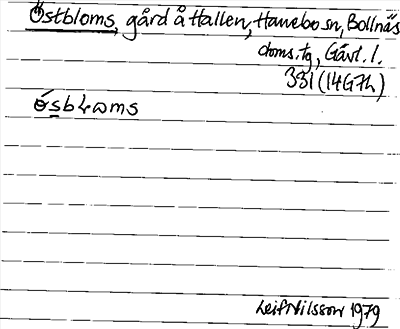 Östbloms, gård å Hallen, Hanebo sn, Bollnäs
doms.tg, Gävl. l.
331 (14G7h)
ósbɷms
Leif Nilsson 1979